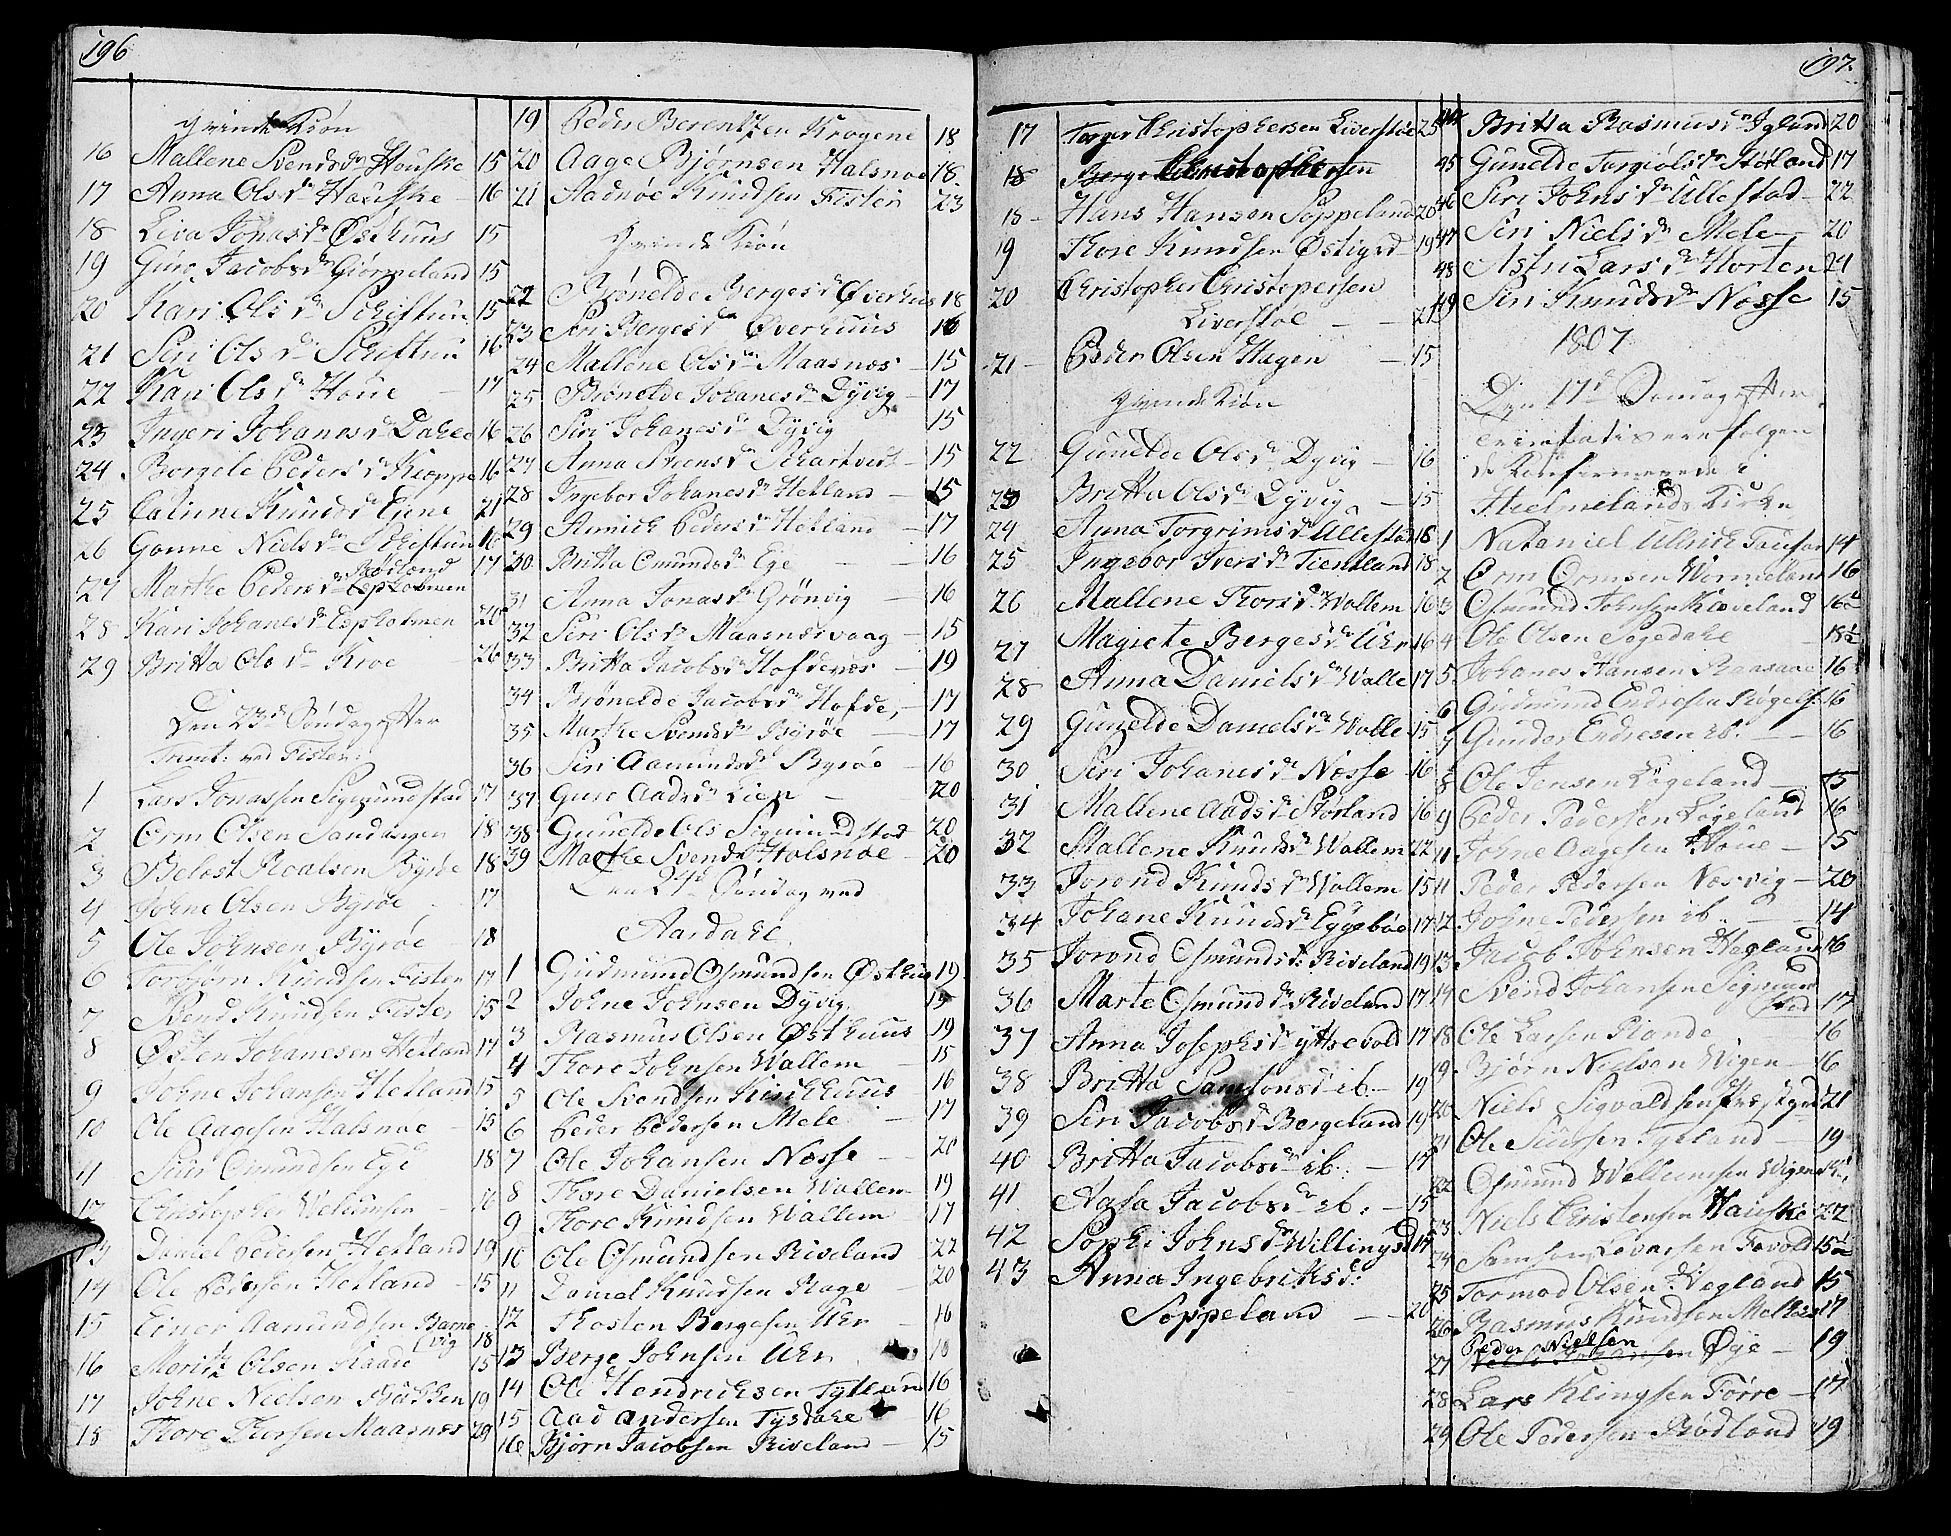 196
Qvinde Kiøn
16 Mallene Svendsdr Houske 15
17 Anna Olsdr Hauske 16
18 Liva Jonasdr Østhuus 15
19 Guro Jacobsdr Giørmeland 15
20 Kari Olsdr Schiftun 15
21 Siri Olsdr Schiftun 16
22 Kari Olsdr Houe 17
23 Ingeri Johanesdr Dahle 16
24 Borgele Pedersdr Kloppe 16
25 Catrine Knudsdr Eiene 21
26 Gonne Nielsdr Schiftun 16
27 Marthe Pedersdr Rødland 17
28 Kari Johanesdr Espholmen 20
29 Britta Olsdr Kroe 26
Den 23d Søndag efter
Trinit: ved Fister:
1 Lars Jonassen Sigmundstad 17
2 Orm Olsen Sandangen 18
3 Belest Roalsen Byrøe 18
4 Johne Olsen Byrøe 17
5 Ole Johnsen Byrøe 18
6 Torbjørn Knudsen Fister 17
7 Svend Knudsen Fister 15
8 Østen Johanesen Hetland 17
9 Johne Johansen Hetland 15
10 Ole Aagesen Halsnøe 15
11 Siur Omundsen Ege 18
12 Christopher Velumsen 16
13 Daniel Pedersen Hetland 19
14 Ole Pedersen Hetland 15
15 Einer Aamundsen Barne
vig 18
16 Moritz Olsen Raade 15
17 Johne Nielsen Bakken 19
18 Thore Thorsen Maasnes 20
19 Peder Berentsen Krogene 18
20 Aage Bjørnsen Halsnøe 18
21 Aadnøe Knudsen Fister 23
Qvinde Kiøn
22 Brønelde Bergesdr Øverhus 18
23 Siri Bergesdr Øverhuus 16
24 Mallene Olsdr Maasnæs 15
25 Brønelde Johanesdr Dyvig 17
26 Siri Johanesdr Dyvig 15
27 Anna Svensdr Schartvet 15
28 Ingebor Johanesdr Hetland 15
29 Annich Pedersdr Hetland 17
30 Britta Omundsdr Ege 16
31 Anna Jonasdr Grønvig 16
32 Siri Olsdr Maasnæsvaag 15
33 Britta Jacobsdr Hofdenes 19
34 Brønelde Jacobsdr Hofde, 17
35 Marthe Svendsdr Byrøe 17
36 Siri Aamundsdr Byrøe 16
37 Guro Aadsdr Lien 20
38 Gunelde Ols Sigmundstad 20
39 Marthe Svendsdr Halsnøe 20
Den 24d Søndag ved
Aardahl
1 Gudmund Osmundsen Østhus 19
2 Johne Johnsen Dyvig
3 Rasmus Olsen Østhuus 19
4 Thore Johnsen Wallem 15
5 Ole Svendsen Kirkhuus 16
6 Peder Pedersen Mele 17
7 Ole Johansen Nosse 20
8 Thore Danielsen Wallem 19
9 Thore Knudsen Wallem 17
10 Ole Osmundsen Riveland 22
11 Daniel Knudsen Hage 20
12 Thosten Bergesen Uhr 16
13 Berge Johnsen Uhr 18
14 Ole Hendrichsen Tytland 16
15 Aad Andersen Tysdahl 16
16 Bjørn Jacobsen Riveland 15
197.
17 Torger Christophersen Liverstøe 25
18 Berge Christophersen
18 Hans Hansen Soppeland 20
19 Thore Knudsen Østigrd 19
20 Christopher Christopersen
Liverstøe 21
21 Peder Olsen Hagen 15
Qvinde Kiøn
22 Gunelde Olsdr Dyvig 16
23 Britta Olsdr Dyvig 15
24 Anna Torgrimsdr Ullestad 18
25 Ingebor Iversdr Tientland 18
26 Mallene Thorsdr Wallem 16
27 Magrete Bergesdr Uhr 16
28 Anna Danielsdr Walle 17
29 Gunelde Danielsdr Walle 15
30 Siri Johanesdr Nosse 16
31 Mallene Aadsdr Størland 16
32 Mallene Knudsdr Wallem 22
33 Jorond Knudsdr Wallem 15
34 Johane Knudsdr Eygebøe 17
35 Jorond Osmundsdr Riveland 19
36 Marte Osmundsdr Riveland 17
37 Anna Josephsdr Ytthevold 17
38 Britta Samsonsdr ib. 19
39 Siri Jacobsdr Bergeland 19
40 Britta Jacobsdr ib. 17
41 Aasa Jacobsdr ib. 15
42 Sophi Johnsdr Willingsd 17
43 Anna Ingebrichtsdr
Soppeland 20
44 Britta Rasmusdr Igland 20
45 Gunelde Torgiølsdr Støland 17
46 Siri Johnsdr Ullestad 22
47 Siri Nielsdr Mele 20
48 Astri Larsdr Horten 21
49 Siri Knudsdr Nosse 15
1807
Den 17d Søndag efter
Trinitatis ere følgen
de Confirmerede i
Hielmelands Kirke
1 Nataniel Ullrich Taufar 14
2 Orm Ormsen Wormeland 16
3 Osmund Johnsen Kleveland 16
4 Ole Olsen Segedahl 18½
5 Johanes Hansen Raasaae 16
6 Gudmund Endresen Køgelf. 16
7 Gunder Endresen ib. 16
8 Ole Jensen Løgeland 15
9 Peder Pedersen Løgeland 16
Johne Aagesen Houe 15
11 Peder Pedersen Næsvig 20
12 Johne Pedersen ib. 14
13 Jacob Johnsen Hagland 16
14 Svend Johansen Sigmund
stad 17
18 Ole Larsen Rande 16
19 Bjørn Nielsen Wigen 16
20 Niels Sigvaldsen Præstgd 21
21 Ole Siursen Tytland 19
22 Osmund Wellumsen Wigen
23 Niels Christensen Hauske 22
24 Samson Lovarsen Fevold 15½
25 Tormod Olsen Vegland 15
26 Rasmus Knudsen Molkes 17
Peder Nielsen
27 Øye 19
28 Lars Klingsen Tørre 17
29 Ole Pedersen Rødland 19